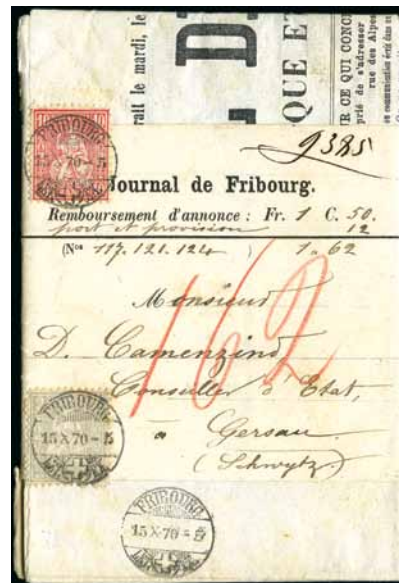 rait le mardi, le
QUE ET
R CE QUI CONC
prié de s'adresser
rue des Alpes
10
FRIBOURG
15 X 70 - 5
9385
Journal de Fribourg.
Remboursement d'annonce : Fr. 1 C. 50.
port et provision 12
(Nos 117. 121. 124 ) 1. 62
162
Monsieur
D. Camenzind
Conseiller d'Etat,
FRIBOURG
15 X 70 - 5
à Gersau.
(Schwytz.)
FRIBOURG
15 X 70 - 5